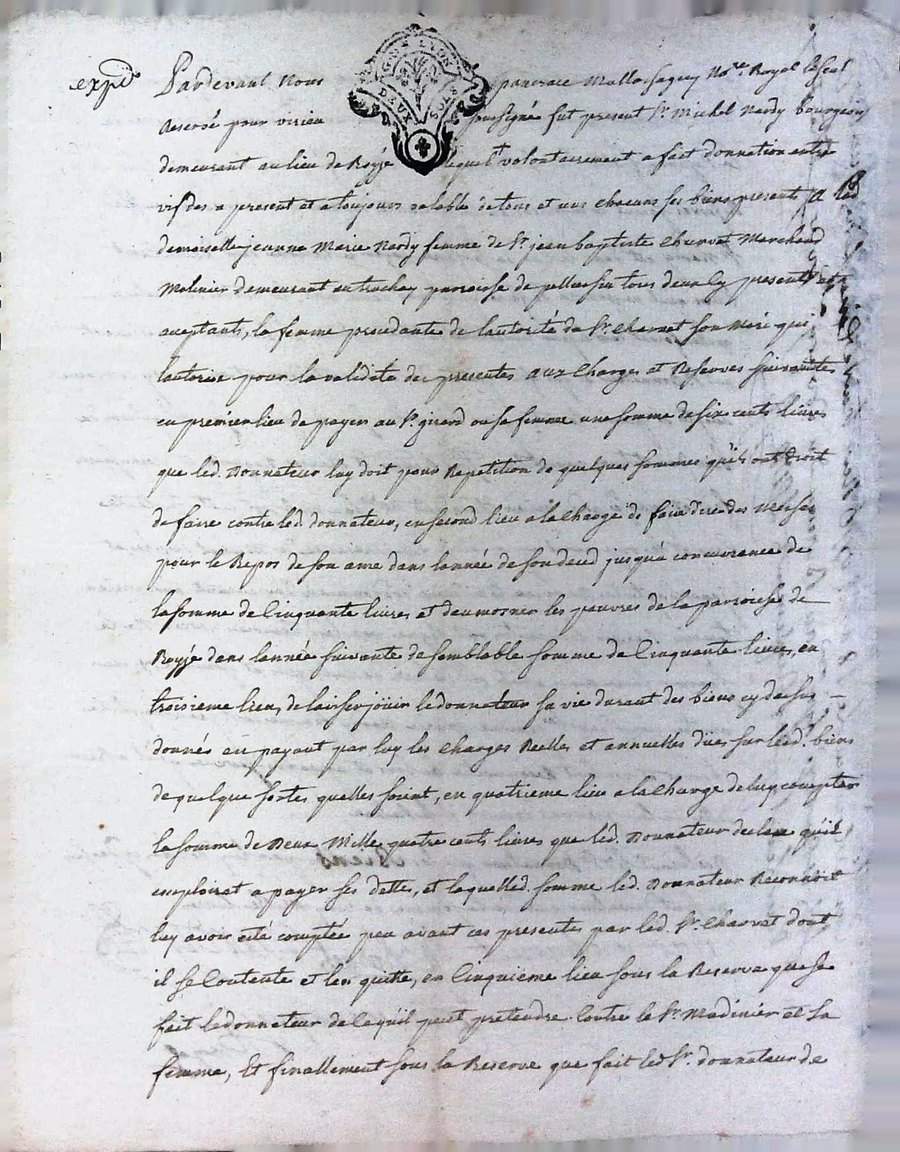 expdé
Pardevant Nous pancrace Mallassagny No.re Royal
Reservé pour virieu soussigné fut present Sr. Michel Nardy bourgeois
demeurant au lieu de Royje lequel volontairement a fait donnation entre
vifs des a present et a toujours valable de tous et uns chacuns ses biens presents A
demoiselle jeanne Marie Nardy femme de Sr. jean baptiste Charvet Marchand
Molinier demeurant au trachay parroisse de pellussin tous deux cy presents et
aceptants, la femme procedante de lautorité du Sr. Charvet son Mari qui
lautorise pour la validité des presentes aux Charges et Reserves suivantes
en premier lieu de payer au Sr. girard ou sa femme une somme de six cents livres
que led. Donnateur luy doit pour Repetition de quelques sommes quils ont droit
de faire contre led. donnateur, en second lieu a la Charge de faire dire des Messes
pour le Repos de son ame dans lannée de son deces jusqua concurrance de
la somme de Cinquante livres, et daumosner les pauvres de la parroisse de
Royje dans lannée suivante de semblable somme de Cinquante livres, en
troisieme lieu, de laisser joüir le donnateur sa vie durant des biens cy dessus
donnés en payant par luy les Charges Reelles et annuelles düés sur lesd. biens
de quelque sortes quelles soient, en quatrieme lieu a la Charge de luy compter
la somme de Deux Mille quatre cents livres que led. Donnateur declare quil
emploirat a payer ses dettes, et laquelled. somme led. Donnateur Reconnoit
luy avoir été comptée peu avant ces presentes par led. Sr. Charvet dont
il se Contente et len quitte, en Cinquieme lieu sous la Reserve que se
fait le donnateur de ce quil peut pretendre Contre le Sr. Madinier et sa
femme, Et finallement sous la Reserve que fait led. Sr. donnateur de